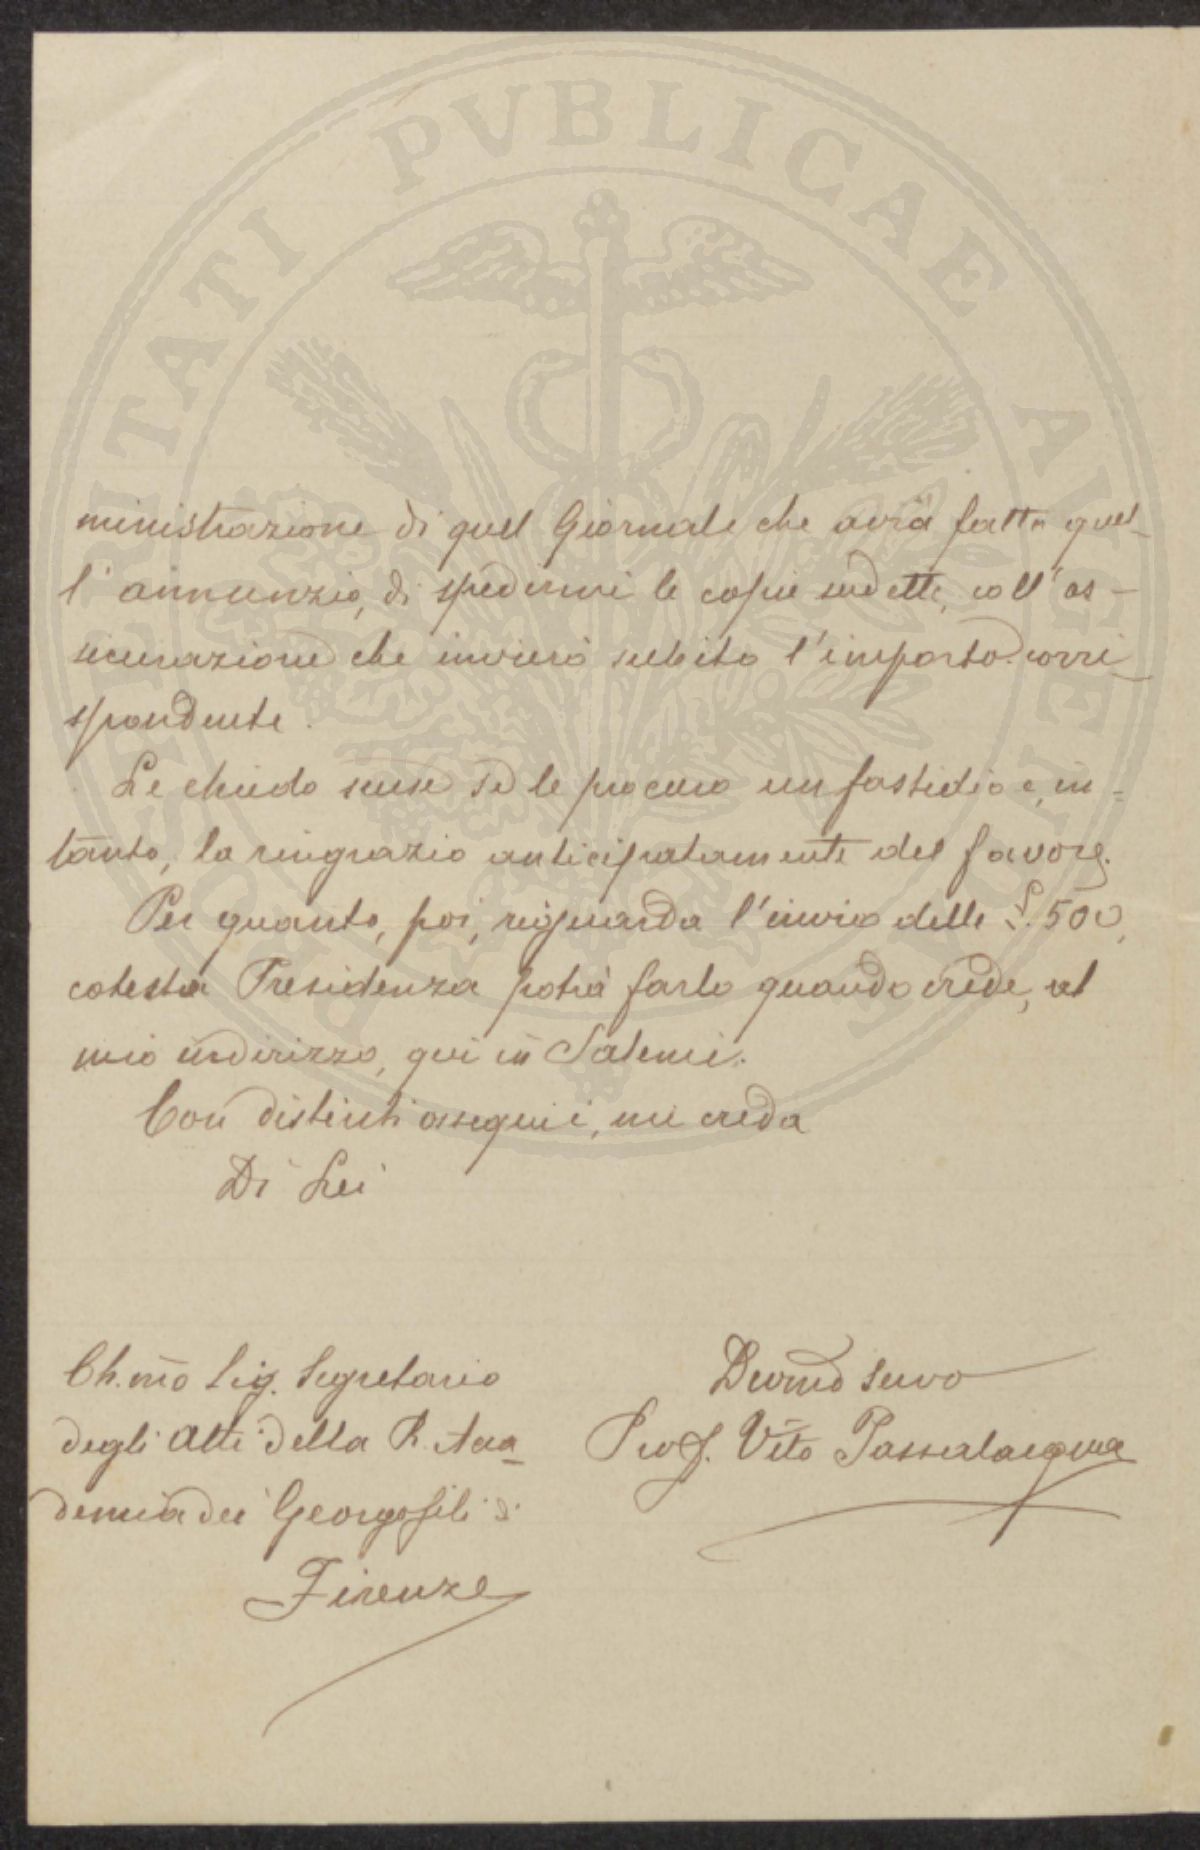 PROSPERITATI PUBLICAE AUGENDAE
ministrazione di quel Giornale che avrà fatto quel-
l'annunzio, di spedirmi le copie sudette, coll'as-
sicurazione che invierò subito l'importo corri-
spondente.
Le chiedo scuse se le procuro un fastidio e, in-
tanto, la ringrazio anticipatamente del favore.
Per quanto, poi, riguarda l'invio delle £. 500,
cotesta Presidenza potrà farlo quando crede, al
mio indirizzo, qui in Salemi.
Con distinti ossequi i, mi creda
Di Lei
Ch.mo Sig. Segretario
degli Atti della R. Acca-
demia dei Georgofili di
Firenze
Devmo servo
Prof. Vito Passalacqua